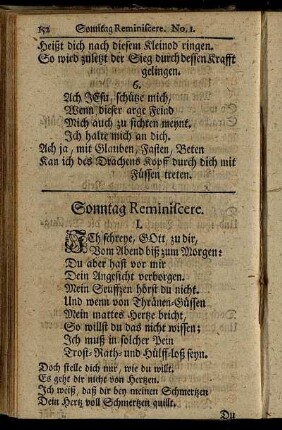 152 Sonntag Reminiscere. No. 1.
Heißt dich nach diesem Kleinod ringen.
So wird zuletzt der Sieg durch dessen Krafft
gelingen.
6.
Ach JEsu, schütze mich,
Wenn dieser arge Feind
Mich auch zu sichten meynt.
Ich halte mich an dich.
Ach ja, mit Glauben, Fasten, Beten
Kan ich des Drachens Kopff durch dich mit
Füssen treten.
Sonntag Reminiscere.
I.
ICh schreye, GOtt zu dir,
Vom Abend biß zum Morgen:
Du aber hast vor mir
Dein Angesicht verborgen.
Mein Seuffzen hörst du nicht.
Und wenn von Thränen-Güssen
Mein mattes Hertze bricht,
So willst du das nicht wissen;
Ich muß in solcher Pein
Trost-Rath- und Hülff-loß seyn.
Doch stelle dich nur, wie du willt.
Es geht dir nicht von Hertzen.
Ich weiß, daß dir bey meinen Schmertzen
Dein Hertz voll Schmertzen quillt.
Du